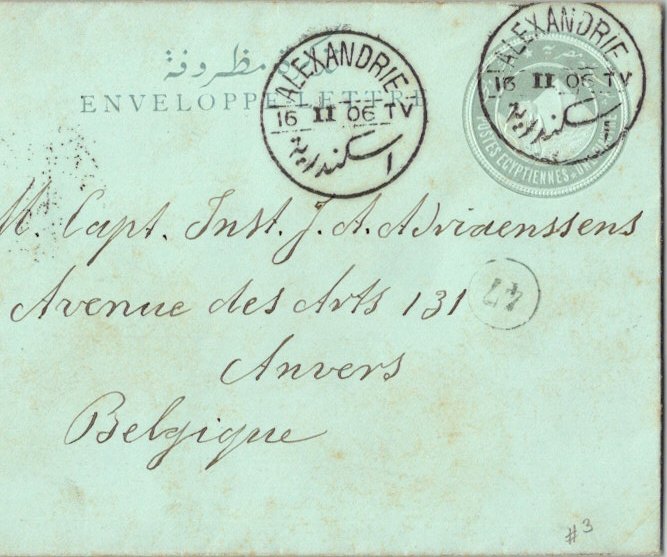 ALEXANDRIE
16 II 06 TV
اسكندرية
ALEXANDRIE
16 II 06 TV
اسكندرية
مظروفة
ENVELOPPE-LETTRE
POSTES EGYPTIENNES
M. Capt. Inst. J. A. Adriaenssens
Avenue des Arts 131
47
Anvers
Belgique
#3